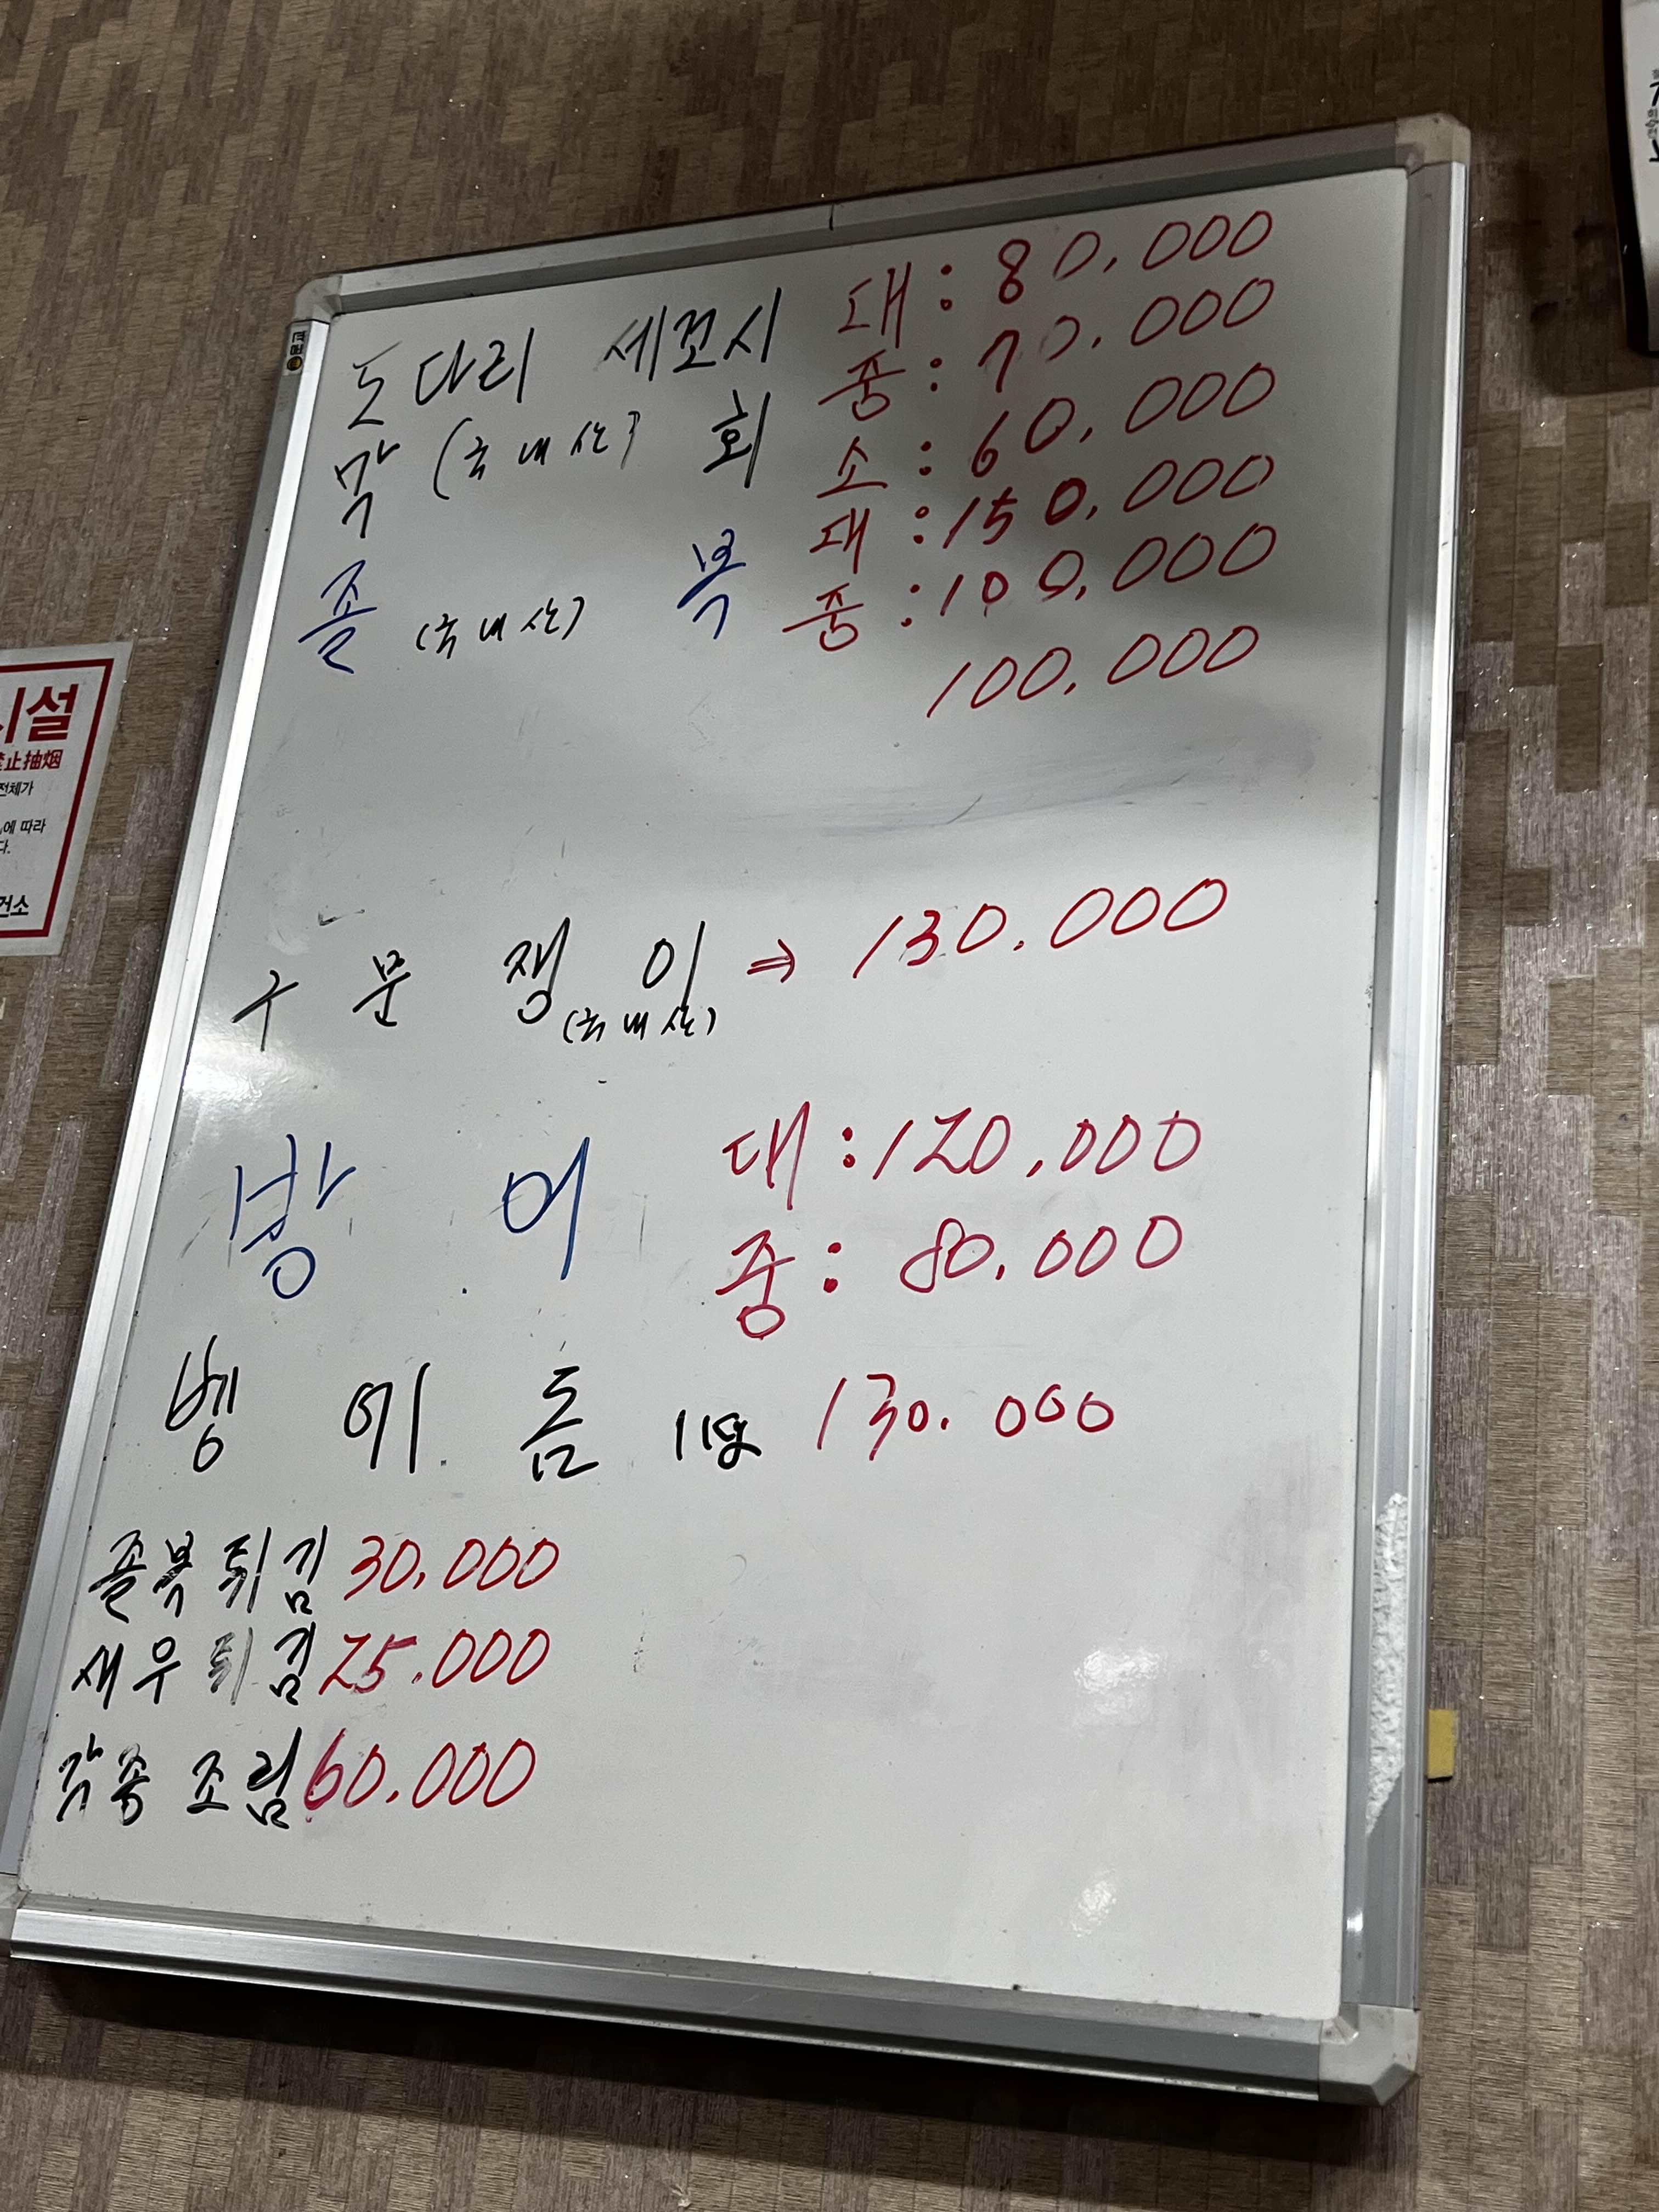 도다리 세꼬시 대 : 80,000
중 : 70,000
막 (국내산) 회 소 : 60,000
대 : 150,000
졸 (국내산) 복 중 : 100,000
100,000
구 문 쟁 이 ⇒ 130.000
(국내산)
방 어 대 : 120,000
중 : 80,000
벵 에 돔 1kg 130.000
졸복 튀김 30,000
새우 튀김 25.000
각종 조림 60.000
시설
禁止抽烟
전체가
에 따라
다.
건소